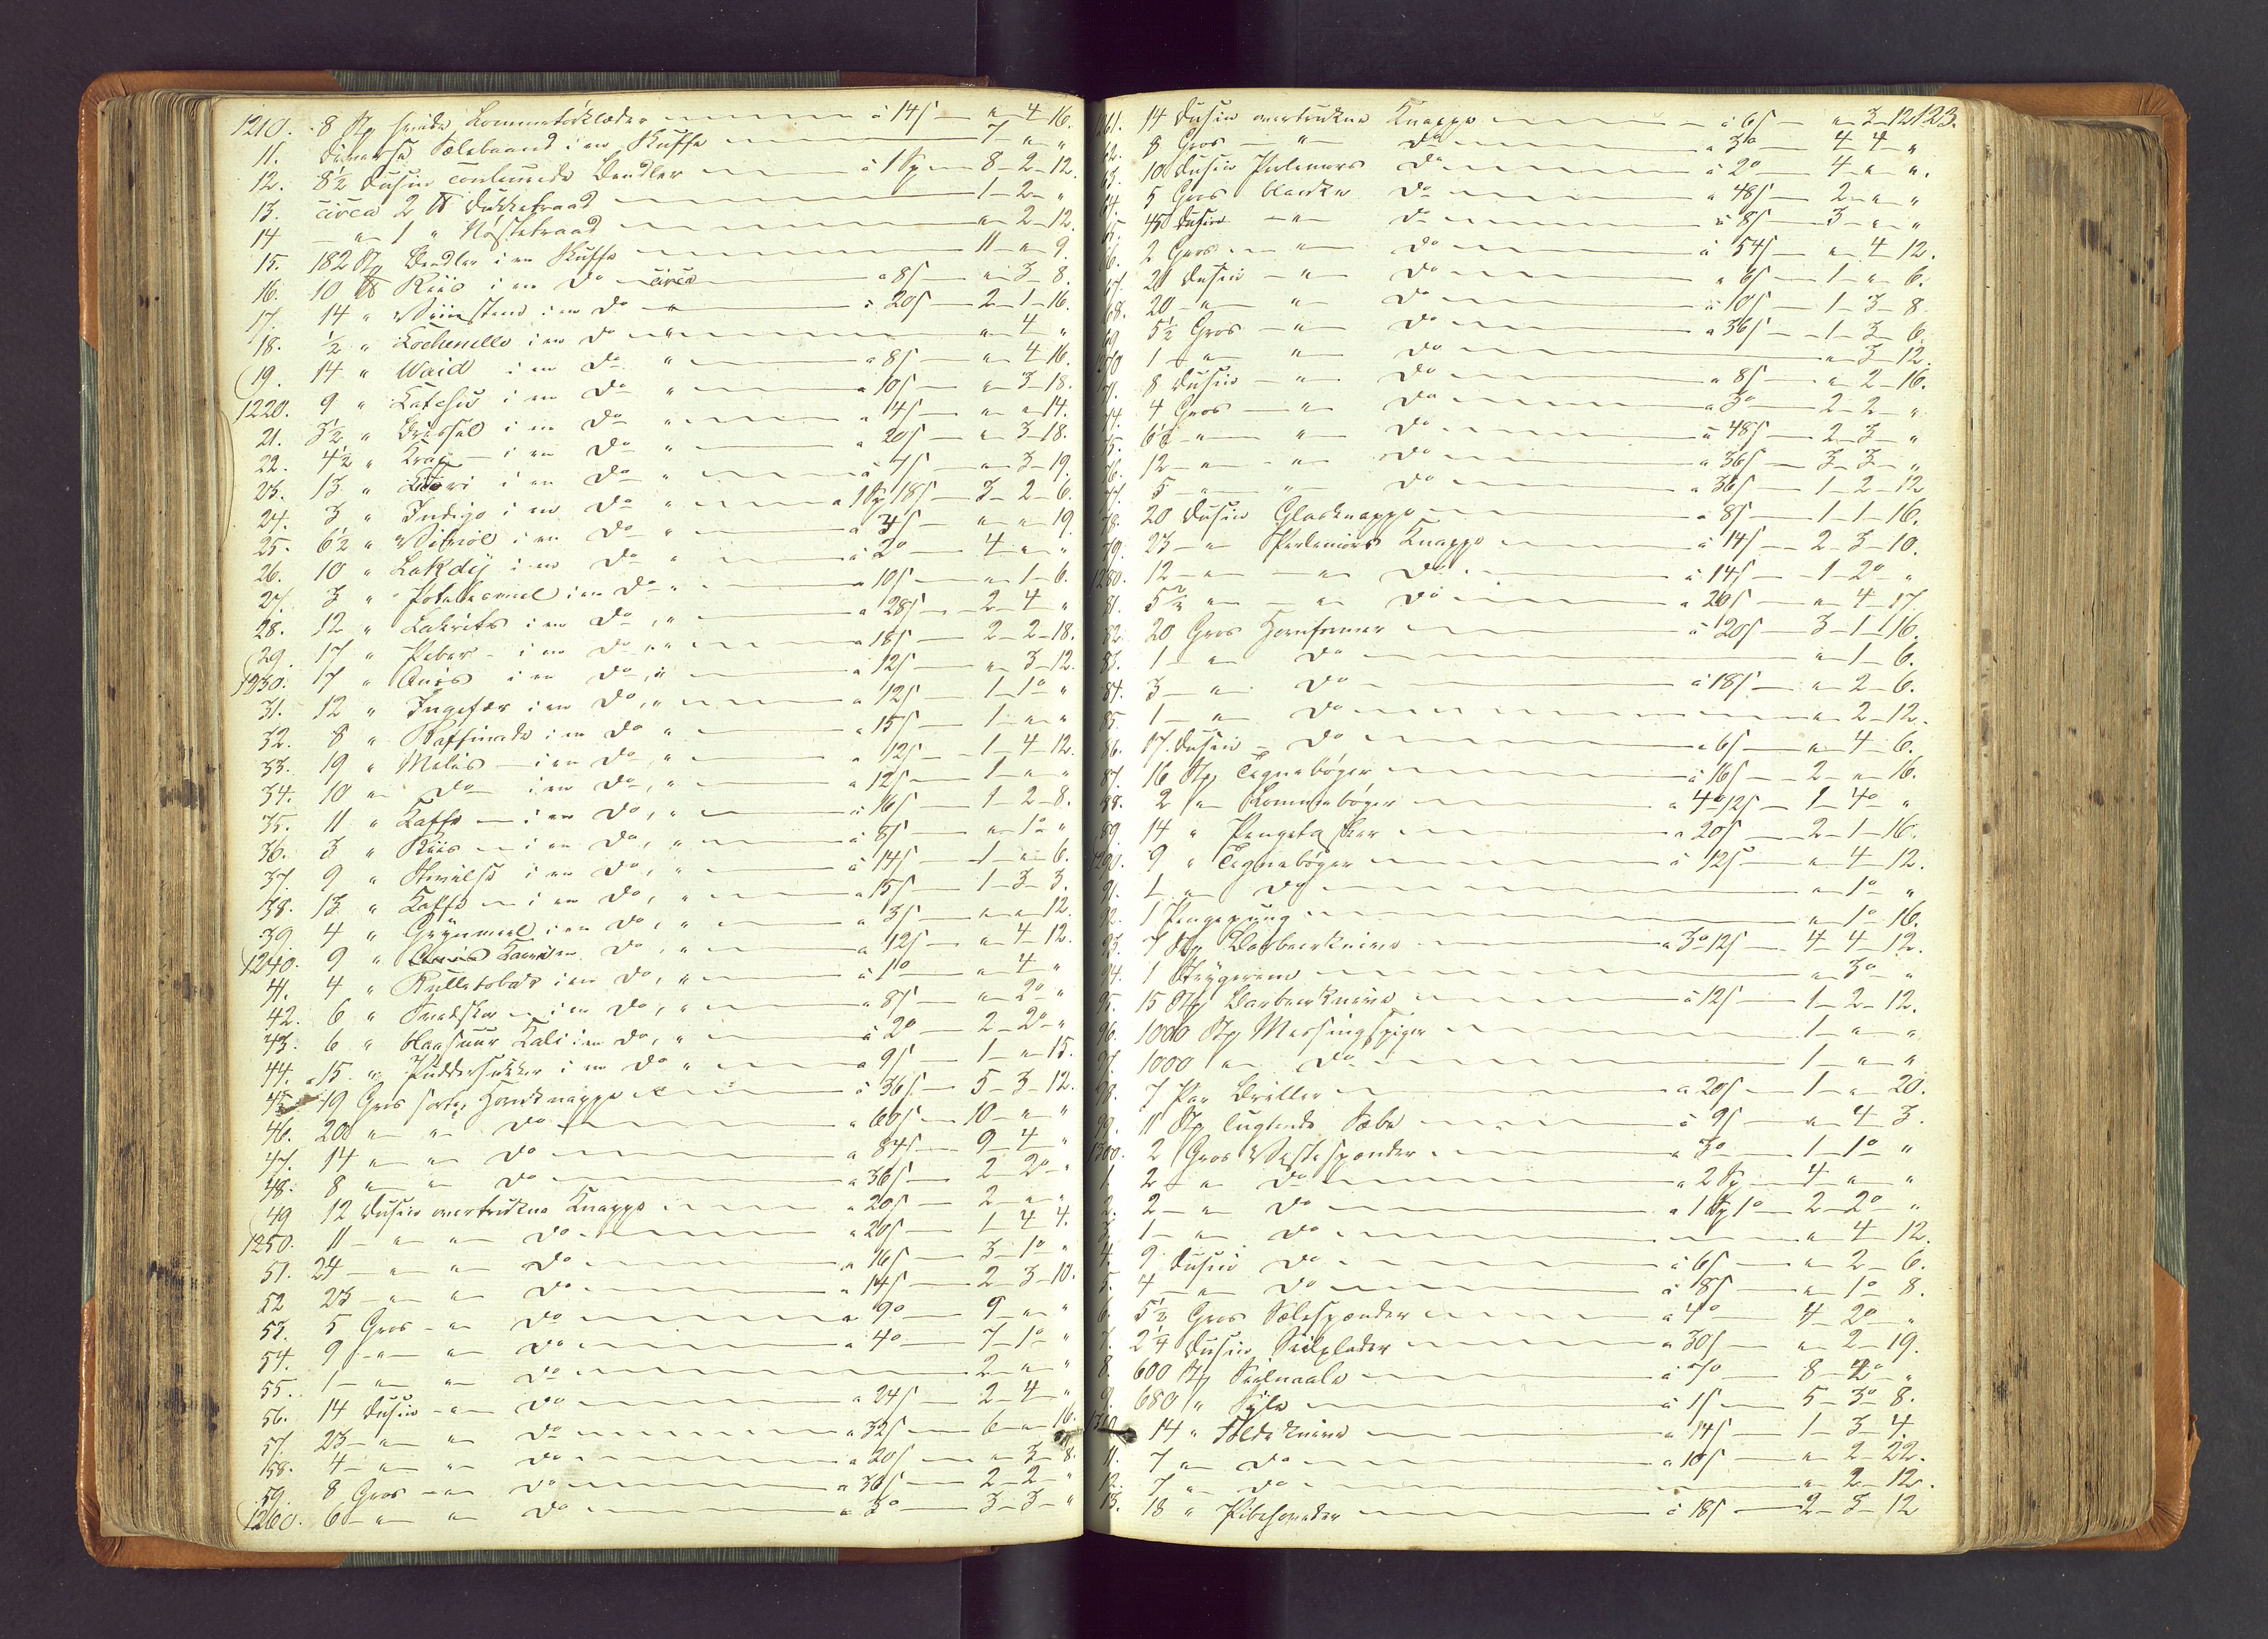 1210. 8 Stk hvide Lommetørklæder à 14 s " 4 16.
11. diverse Sælebaand i en Skuffe 7 " "
12. 8½ Dusin couleurede Bændler à 1 Sp 8-2-12.
13. circa 2 ℔ Dukketraad 1-2-"
14 - " 1 " Nøstetraad " 2-12.
15. 182 Stk Bændler i en Skuffe 11-"-9.
16. 10 ℔ Riis i en Do circa à 8 s " 3-8.
17. 14 " Viinsteen i en Do " à 20 s 2-1-16.
18. ½ " Cochenille i en Do " " 4 "
19. 14 " Waid i en Do " à 8 s " 4-16.
1220. 9 " Catechu i en Do " à 10 s " 3-18.
21. 3½ " i en Do " à 14 s " " 14.
22. 4½ " Krap i en Do " à 20 s " 3-18.
23. 13 " i en Do " à 7 s " 3-19.
24. 3 " Indigo i en Do " à 1 Sp 18 s 3-2-6.
25. 6½ " Vitriol i en Do " à 3 s " " 19.
26. 10 " Lakdÿ i en Do " à 2o 4 " "
27. 3 " Potetesmeel i en Do " à 10 s " 1-6.
28. 12 " Lakrits i en Do, " à 28 s 2-4 "
29. 17 " Peber i en Do " à 18 s 2-2-18.
1230. 7 " Anis i en Do, " à 12 s " 3-12.
31. 12 " Ingefær i en Do, " à 12 s 1-1o "
32. 8 " Raffinade i en Do " à 15 s 1 " "
33. 19 " Melis i en Do, " à 12 s 1-4-12.
34. 10 " Do i en Do, " à 12 s 1 " "
35. 11 " Kaffe i en Do, " à 16 s 1-2-8.
36. 3 " Riis i en Do, " à 8 s " 1o "
37. 9 " Stivelse i en Do, " à 14 s 1 " 6.
38. 13 " Kaffe i en Do, " à 15 s 1-3-3.
39. 4 " Grÿnmeel i en Do, " à 3 s " " 12.
1240. 9 " i en Do, " à 12 s " 4-12.
41. 4 " Rulletobak i en Do, " à 1o " 4 "
42. 6 " Svedsker i en Do, " à 8 s " 2o "
43. 6 " blaasuur Kali i en Do, " à 2o 2-2o "
44. 15 " Puddersukker i en Do " à 9 s 1 " 15.
45 19 Gros sorte Hornknappe à 36 s 5-3-12.
46. 20 " " Do à 60 s 10 " "
47. 14 " " Do à 84 s 9-4 "
48. 8 " " Do à 36 s 2-2o "
49 12 Dusin overtrukne Knappe à 20 s 2 " "
1250. 11 " " Do à 20 s 1-4-4.
51. 24 " " Do à 16 s 3-1o "
52 23 " " Do à 14 s 2-3-10.
53. 5 Gros " Do à 9o 9 " "
54. 9 " " Do à 4o 7-1o "
55. 1 " " Do 2 " "
56. 14 Dusin " Do à 24 s 2-4 "
57. 23 " " Do à 32 s 6 " 16.
58. 4 " " Do à 20 s " 3-8.
59. 8 Gros " Do à 36 s 2-2 "
1260. 6 " " Do à 3o 3-3 "
123.
61. 14 Dusin overtrukne Knappe à 6 s " 3-12
62. 8 Gros " Do à 3o 4-4 "
63. 10 Dusin Perlemors Do à 2o 4 " "
64. 5 Gros blanke Do à 48 s 2 " "
65. 45 Dusin " Do à 8 s 3 " "
66. 2 Gros " Do à 54 s " 4-12.
67. 21 Dusin " Do à 6 s 1 " 6.
68. 20 " " Do à 10 s 1-3-8
69 5½ Gros " Do à 36 s 1-3-6.
1270 1 " " Do " 3-12.
71. 8 Dusin " Do à 8 s " 2-16.
74. 4 Gros " Do à 3o 2-2 "
75. 6½ " " Do à 48 s 2-3 "
76. 12 " " Do à 36 s 3-3 "
77. 5 " " Do à 36 s 1-2-12
78. 20 Dusin Glasknappe à 8 s 1-1-16.
79. 23 " Perlemors Knappe à 14 s 2-3-10.
1280. 12 " " Do à 14 s 1-2o "
81. " " Do à 20 s " 4-17.
82. 20 Gros Hornformer à 20 s 3-1-16.
83. 1 " Do " 1-6.
84. 3 " Do à 18 s " 2-6.
85. 1 " Do " 2-12.
86. 17. Dusin Do à 6 s " 4-6.
87. 16 Stk Tegnebøger à 16 s 2 " 16.
88. 2 " Lommebøger à 4o 12 s 1-4o "
89. 14 " Pengetasker à 20 s 2-1-16.
1290. 9 " Tegnebøger à 12 s " 4-12.
91. 1 " Do " 1o "
92. 1 Pengepung " 1o 16.
93. 7 Stk Barbeerknive à 3o 12 s 4-4-12.
94. 1 Strÿgerem " 3o "
95. 15 Stk Barbeerknive à 12 s 1-2-12.
96. 1000 Stk Messingspiger 1 " "
97. 1000 " Do 1 " "
98. 7 Par Briller à 20 s 1 " 20.
99. 11 Stk lugtende Sæbe à 9 s " 4-3.
1300. 2 Gros Vestespænder à 3o 1-1o "
1. 2 " Do à 2 Sp 4 " "
2. 2 " Do à 1 Sp 1o 2-2o "
3. 1 " Do " 4-12.
4. 9 Dusin Do à 6 s " 2-6.
5. 4 " Do à 8 s " 1o 8.
6. 5½ Gros Sælespænder à 4o 4-2o "
7. 2¼ Dusin à 30 s " 2-19.
8. 600 Stk Seilnaale à 7o 8-2o "
9. 680 " Syle à 1 s 5-3o 8.
1310 14 " Foldeknive à 14 s 1-3-4.
11. 7 " Do à 10 s " 2-22.
12. 7 " Do " 2-12.
13. 18 " Pibehoveder à 18 s 2-3-12